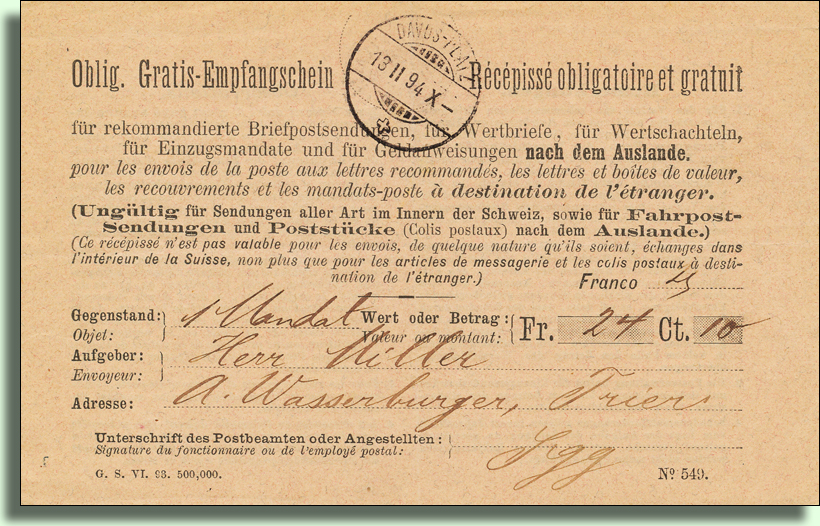 DAVOS-PLATZ
13 II 94 X–
Oblig. Gratis-Empfangschein Récépissé obligatoire et gratuit
für rekommandierte Briefpostsendungen, für Wertbriefe, für Wertschachteln,
für Einzugsmandate und für Geldanweisungen nach dem Auslande.
pour les envois de la poste aux lettres recommandés, les lettres et boîtes de valeur,
les recouvrements et les mandats-poste à destination de l'étranger.
(Ungültig für Sendungen aller Art im Innern der Schweiz, sowie für Fahrpost-
Sendungen und Poststücke (Colis postaux) nach dem Auslande.)
(Ce récépissé n'est pas valable pour les envois, de quelque nature qu'ils soient, échangés dans
l'intérieur de la Suisse, non plus que pour les articles de messagerie et les colis postaux à desti-
nation de l'étranger.)
Franco 25
Gegenstand: 1 Mandat Wert oder Betrag: Fr. 24 Ct. 10
Objet: Valeur ou montant:
Aufgeber: Herr Miller
Envoyeur:
Adresse: A. Wasserburger, Trier
Unterschrift des Postbeamten oder Angestellten:
Signature du fonctionnaire ou de l'employé postal:
G. S. VI. 93. 500,000. Nº 549.